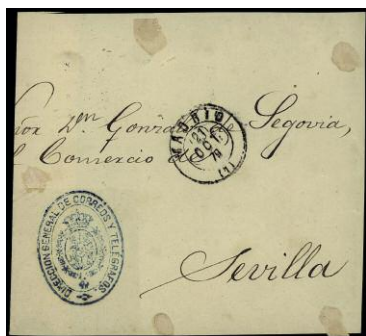 ñor Dn Gonzalo Segovia,
l Comercio de
MADRID
21
OCT
79
(1)
DIRECCION GENERAL DE CORREOS Y TELEGRAFOS
Sevilla